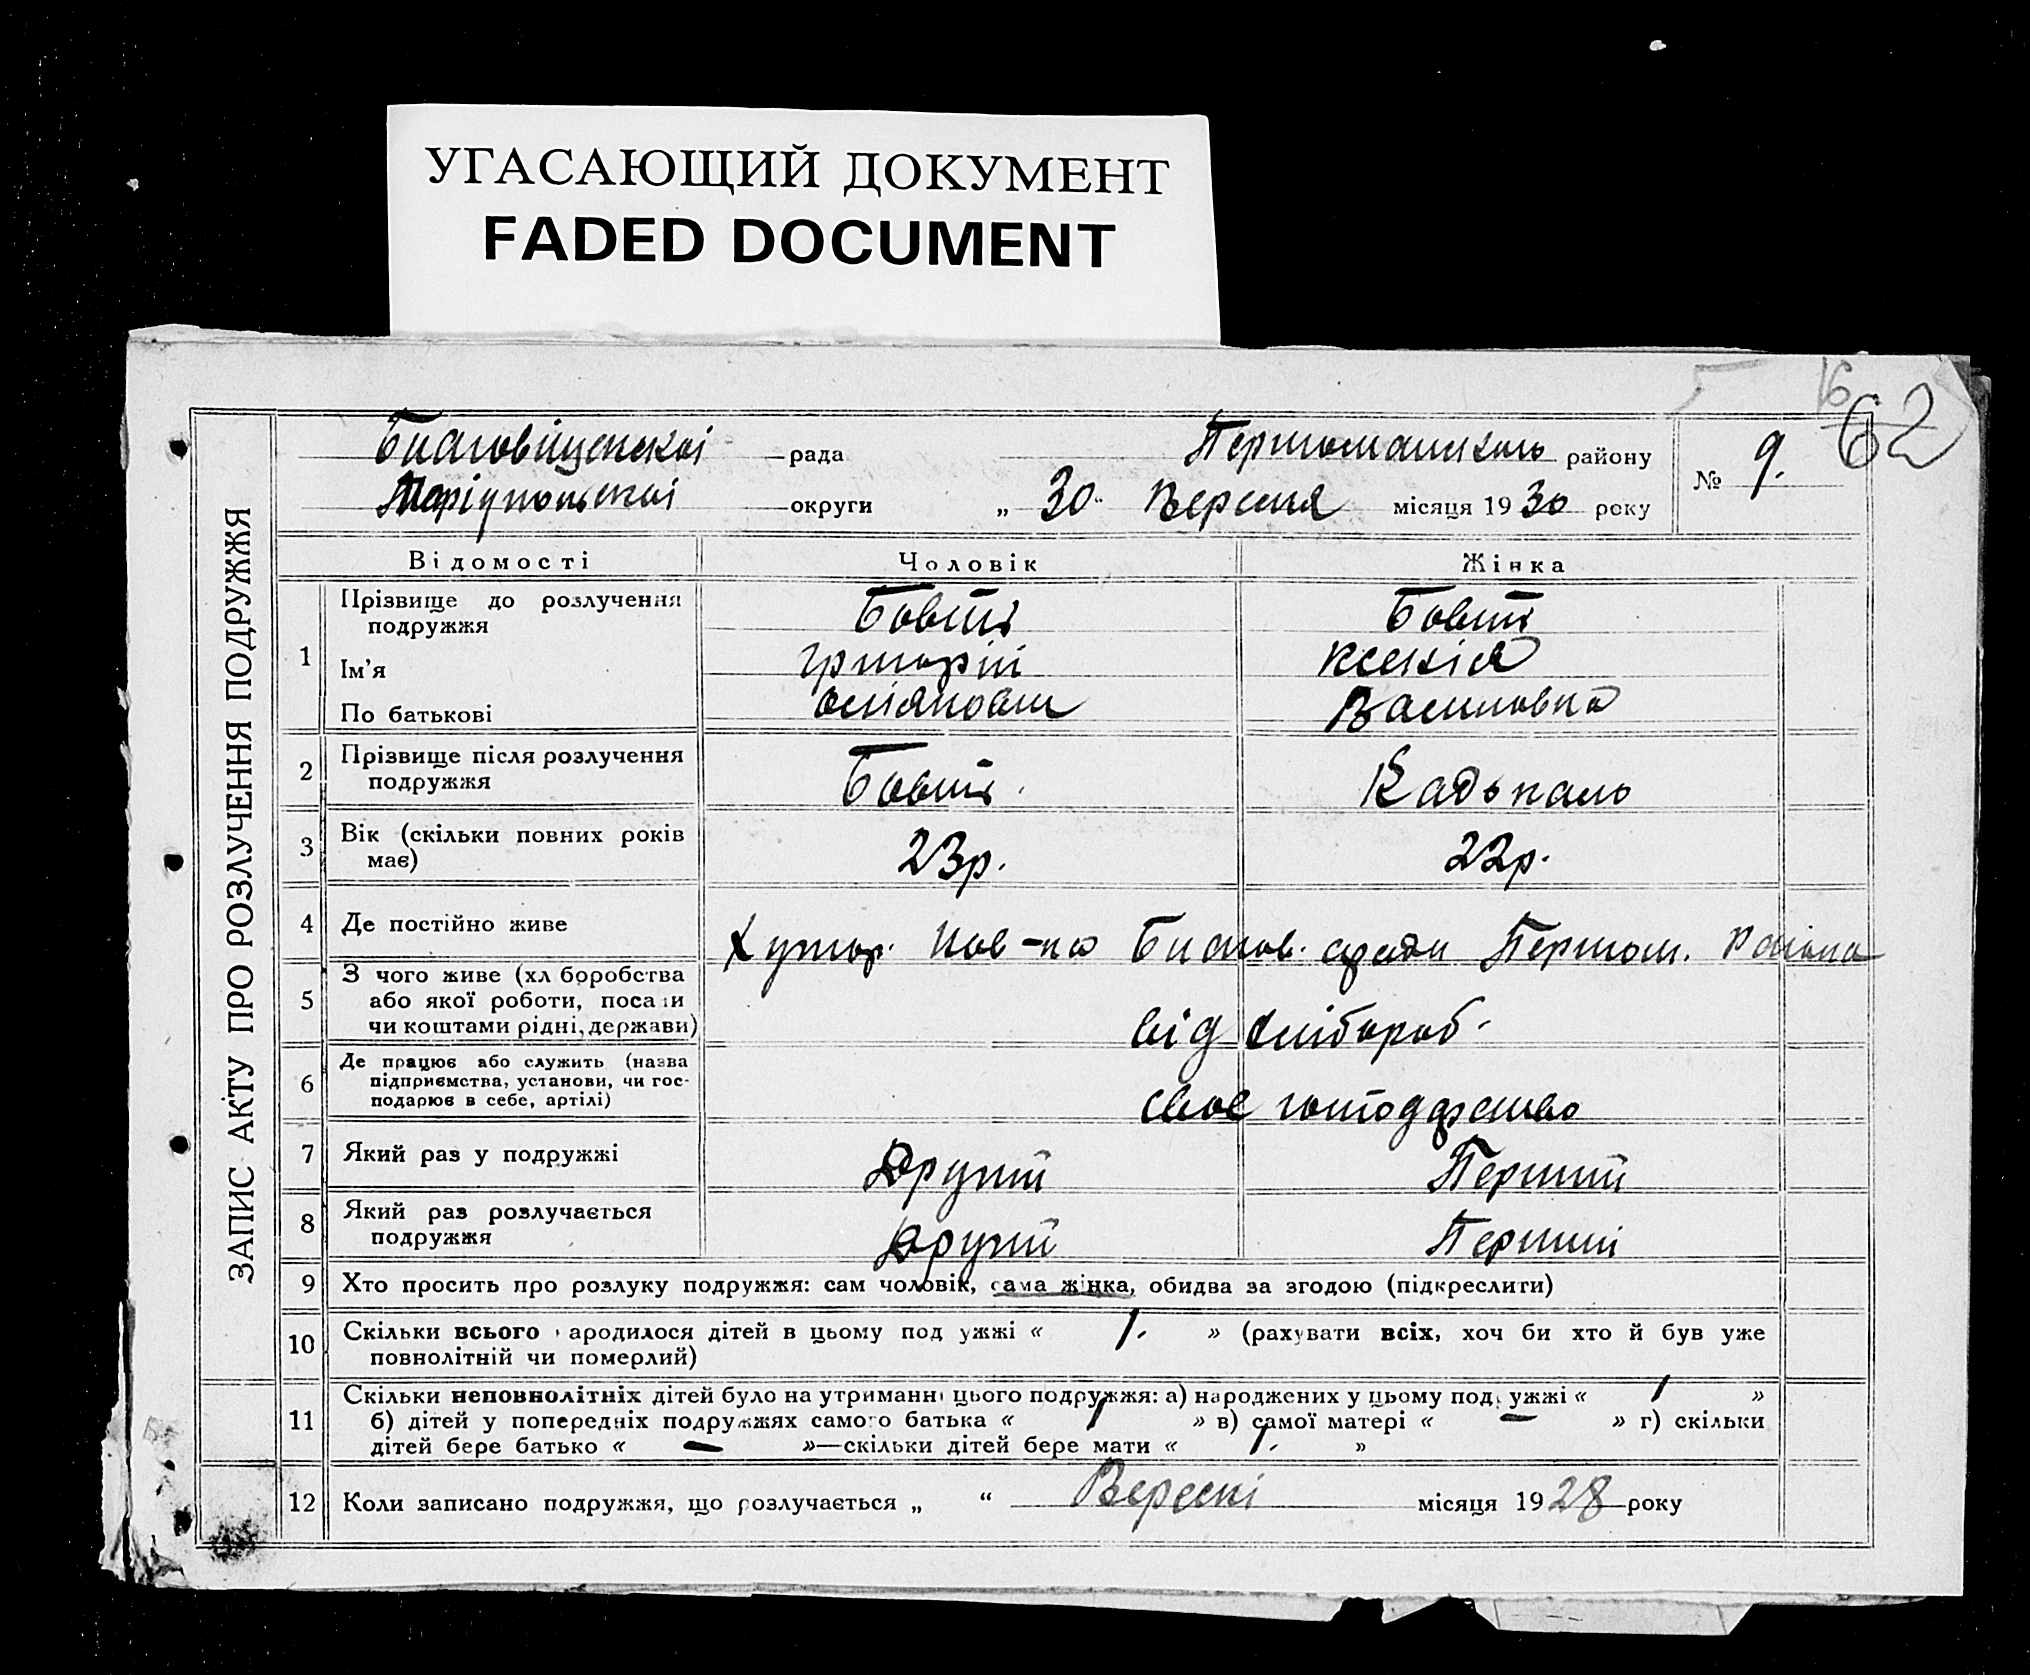 УГАСАЮЩИЙ ДОКУМЕНТ
FADED DOCUMENT
16
62
ЗАПИС АКТУ ПРО РОЗЛУЧЕННЯ ПОДРУЖЖЯ
Благовіщенської рада Першомайського району № 9.
Маріупольської округи „ 30 " Вересня місяця 1930 року
Відомості Чоловік Жінка
1 Прізвище до розлучення подружжя Бовт Бовт
Ім'я Григорій Ксенія
По батькові Василовна
2 Прізвище після розлучення подружжя Бовт
3 Вік (скільки повних років має) 23р. 22р.
4 Де постійно живе Хутор. Нов-ка Благов. сради Першом. Района
5 З чого живе (хліборобства або якої роботи, посади чи коштами рідні, держави) від хлібороб.
6 Де працює або служить (назва підприємства, установи, чи господарює в себе, артілі) своє господарство
7 Який раз у подружжі Другий Перший
8 Який раз розлучається подружжя Другий Перший
9 Хто просить про розлуку подружжя: сам чоловік, сама жінка, обидва за згодою (підкреслити)
10 Скільки всього народилося дітей в цьому подружжі « 1. » (рахувати всіх, хоч би хто й був уже
повнолітній чи померлий)
11 Скільки неповнолітніх дітей було на утриманні цього подружжя: а) народжених у цьому подружжі « 1 »
б) дітей у попередніх подружжях самого батька « 1 » в) самої матері « — » г) скільки
дітей бере батько « — »—скільки дітей бере мати « 1. »
12 Коли записано подружжя, що розлучається „ “ Вересні місяця 1928 року